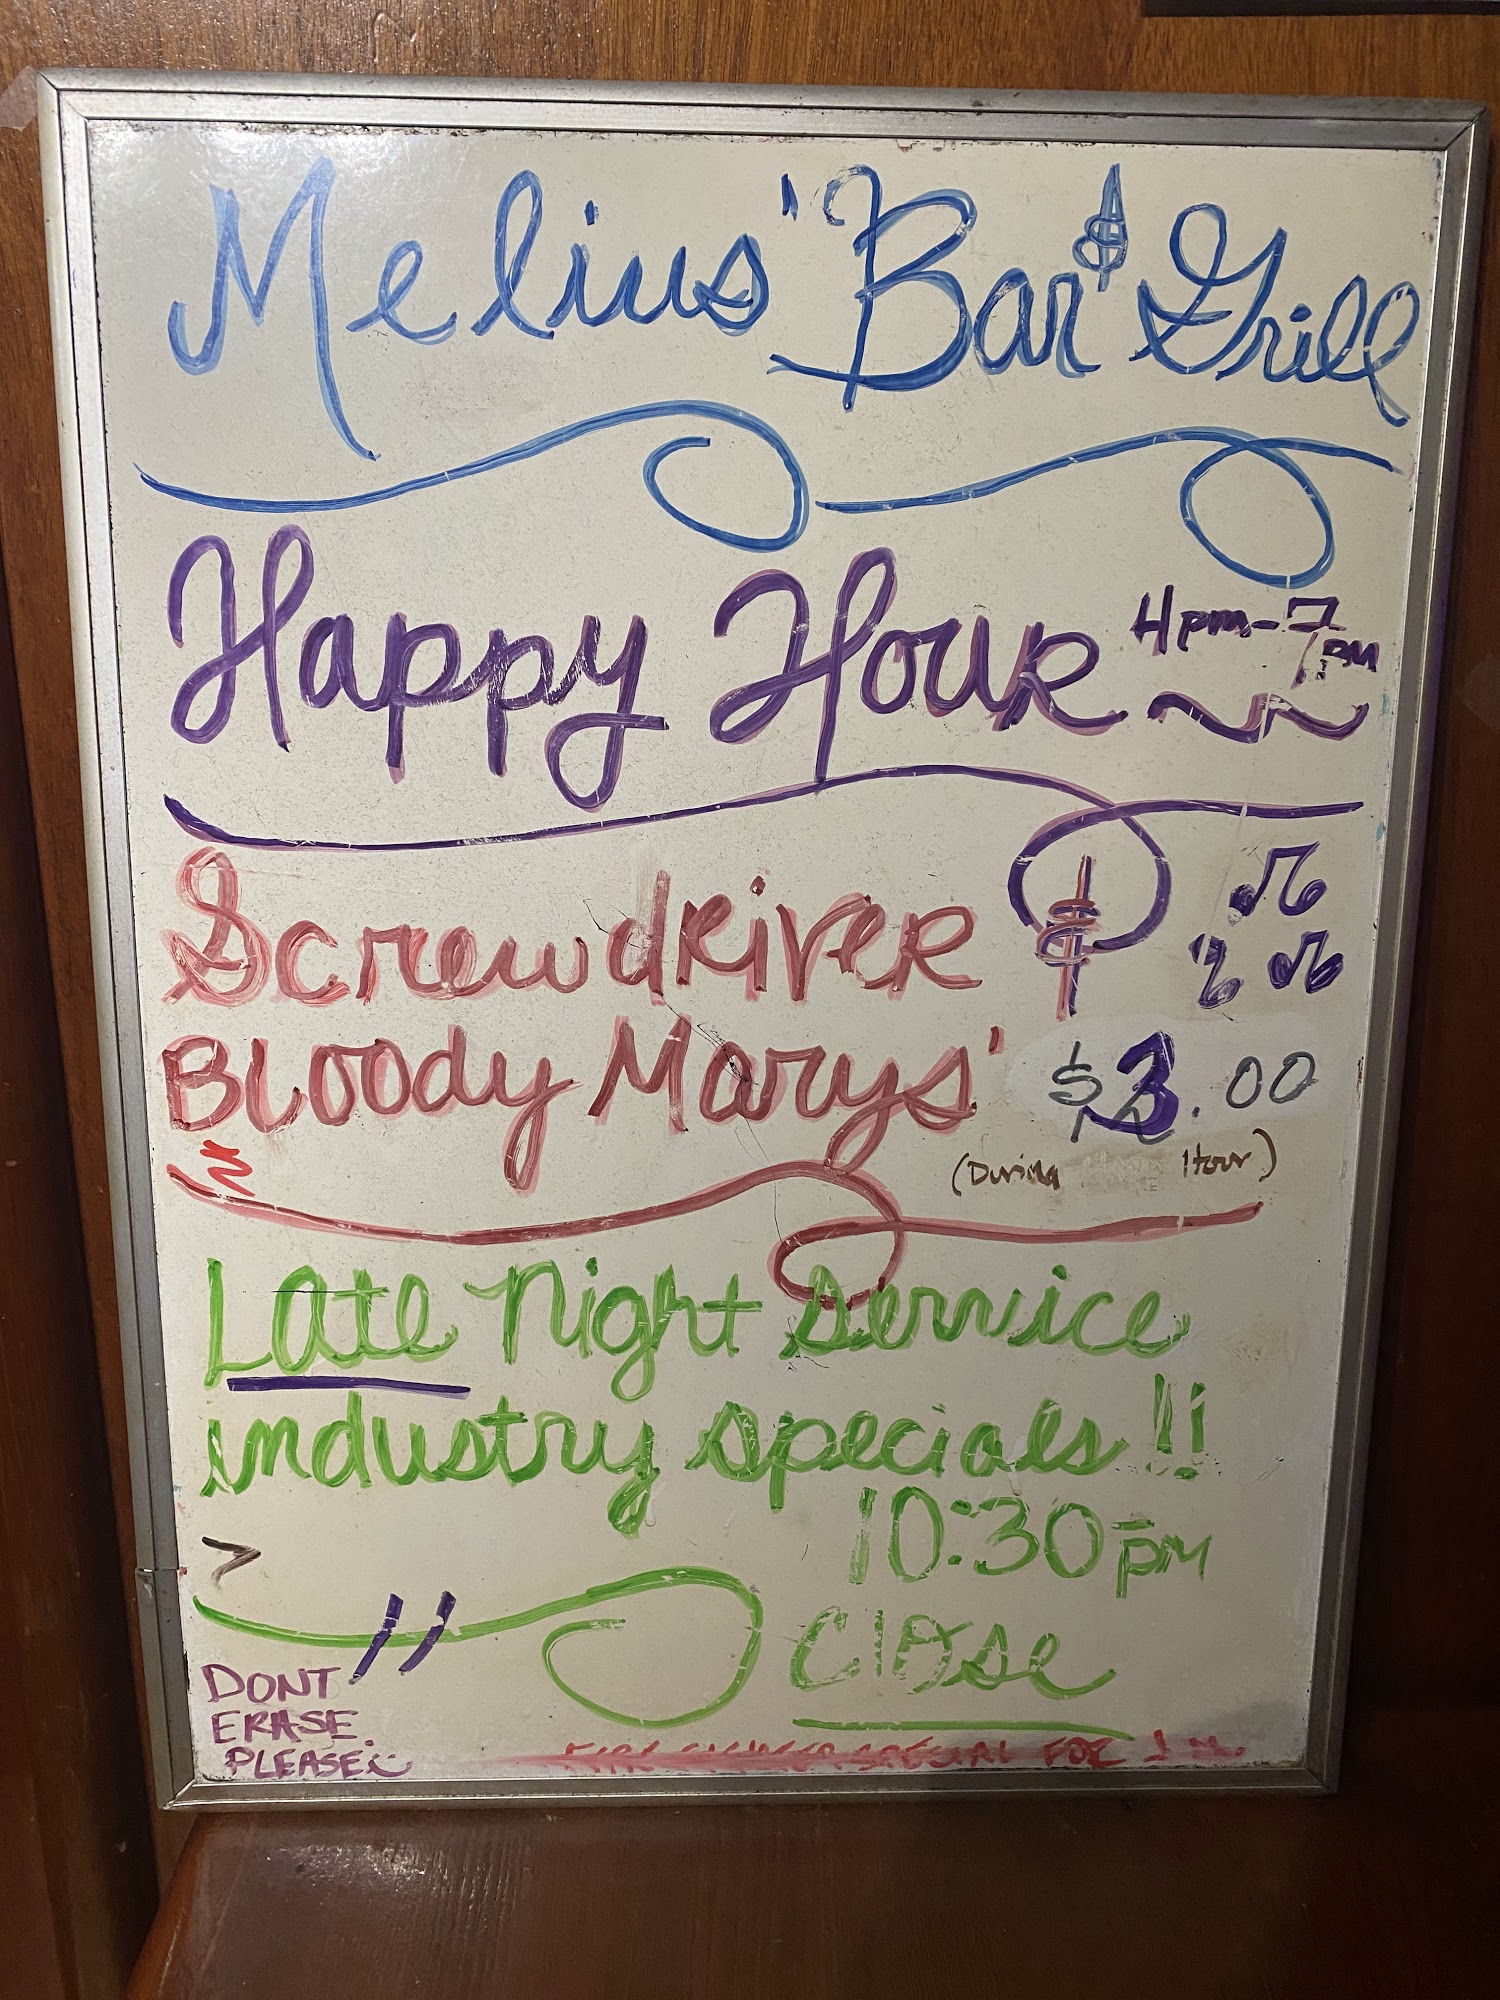 Melius' Bar & Grill
Happy Hour 4pm-7pm
Screwdriver &
Bloody Marys' $3.00
(During Hour)
Late Night Service
industry specials!!
10:30pm
Close
DONT
ERASE
PLEASE
SPECIAL FOR